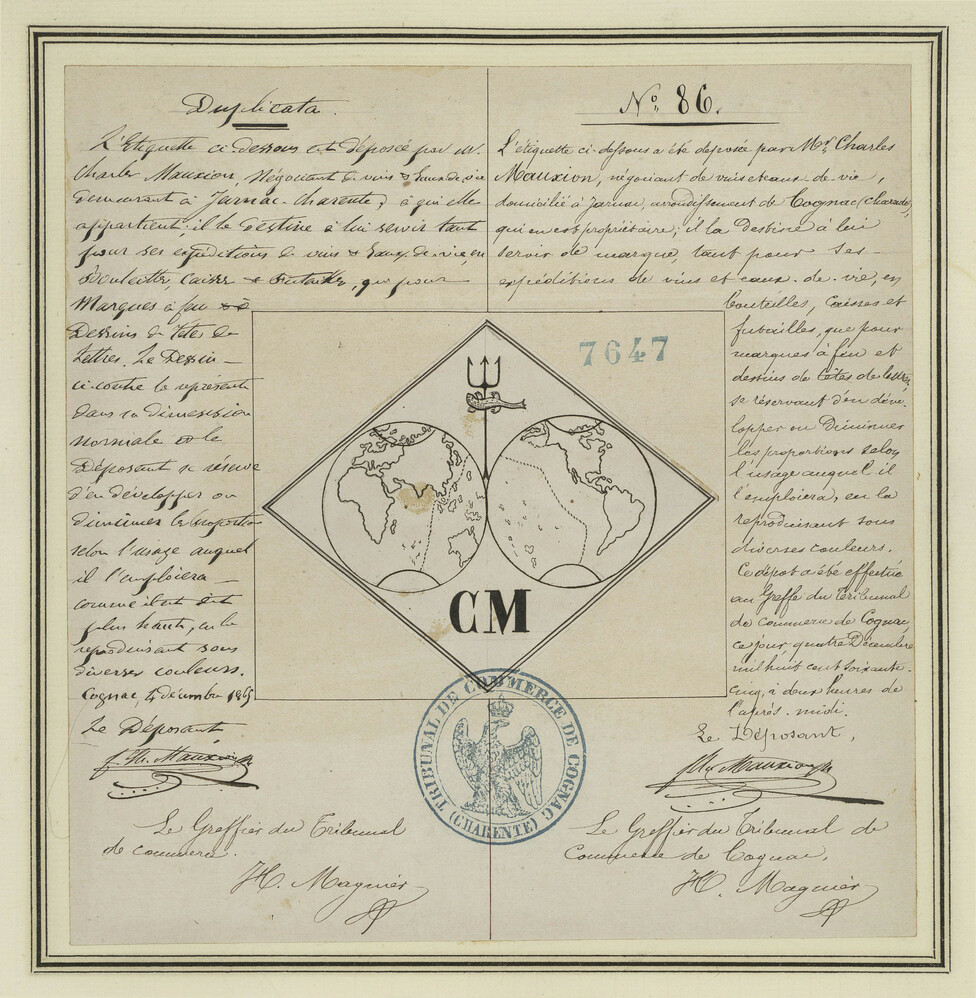 Duplicata.
L'Etiquette ci-dessous est déposée par M.
Charles Mauxion, Négociant de vins & Eaux de vie
demeurant à Jarnac-Charente, à qui elle
appartient: il le destine à lui servir tant
pour ses expéditions de vins & Eaux-de-vie, en
Bouteilles, Caisses & Futailles, que pour
Marques à feu &
Dessins de Têtes de
Lettres. Le Dessin
ci-contre le représente
dans sa dimension
normale et le
Déposant se réserve
d'en développer ou
diminuer les proportions
selon l'usage auquel
il l'emploiera
comme il est dit
plus haut, en le
reproduisant sous
diverses couleurs.
Cognac, 4 décembre 1865
Le Déposant
Ch. Mauxion
Le Greffier du Tribunal
de commerce.
H. Magnier
No. 86.
L'étiquette ci-dessous a été déposée par Mr. Charles
Mauxion, négociant de vins et eaux-de-vie,
domicilié à Jarnac, arrondissement de Cognac (Charente),
qui en est propriétaire; il la destine à lui
servir de marque, tant pour ses
expéditions de vins et eaux-de-vie, en
bouteilles, caisses et
futailles, que pour
marques à feu et
dessins de têtes de lettres,
se réservant d'en déve-
lopper ou diminuer
les proportions selon
l'usage auquel il
l'emploiera, en la
reproduisant sous
diverses couleurs.
Ce dépôt a été effectué
au Greffe du Tribunal
de commerce de Cognac,
ce jour, quatre Décembre
mil huit cent soixante-
cinq, à deux heures de
l'après-midi.
Le Déposant,
Ch. Mauxion
Le Greffier du Tribunal de
Commerce de Cognac,
H. Magnier
7647
CM
TRIBUNAL DE COMMERCE DE COGNAC
(CHARENTE)